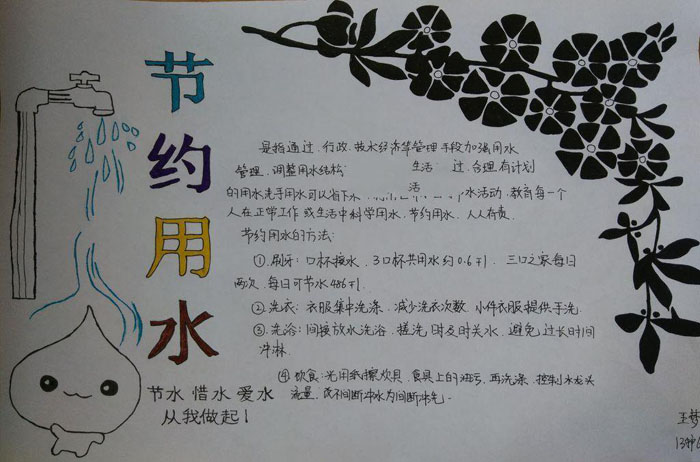 节约用水
是指通过 行政 技术经济等管理手段加强用水
管理 调整用水结构 生活 过 合理有计划
的用水先手用水可以省下水 水活动,教育每一个
活
人在正常工作或生活中科学用水,节约用水,人人有责
节约用水的方法:
①.刷牙:口杯接水 3口杯共用水约0.6 三口之家每日
两次,每日可节水486
②.洗衣:衣服集中洗涤 减少洗衣次数 小件衣服提供手洗
③.洗浴:间接放水洗浴 搓洗 时及时关水 避免过长时间
冲淋
④ 饮食:先用纸擦炊具 食具上的油污 再洗涤 控制水龙头
流量,改不间断冲水为间断冲洗
节水 惜水 爱水
从我做起!
王梦